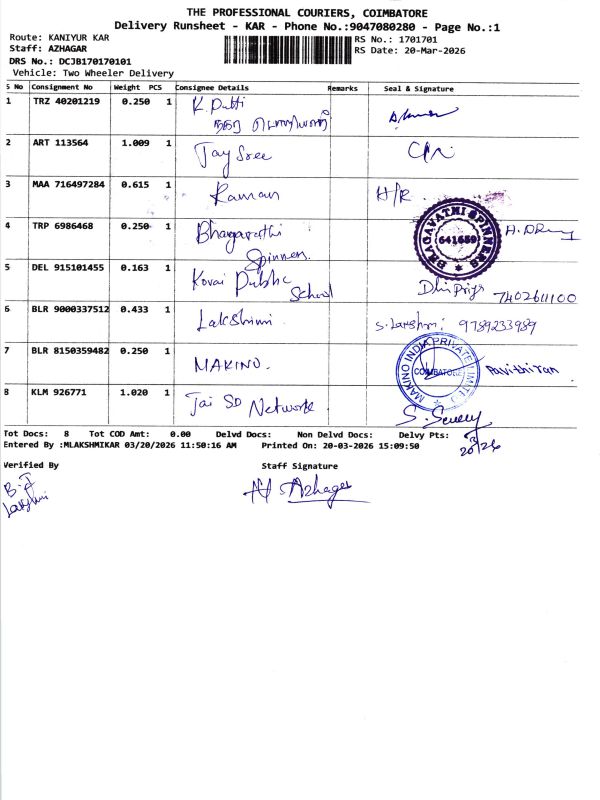 THE PROFESSIONAL COURIERS, COIMBATORE
Delivery Runsheet - KAR - Phone No.:9047080280 - Page No.:1
Route: KANIYUR KAR
RS No.: 1701701
Staff: AZHAGAR
RS Date: 20-Mar-2026
DRS No.: DCJB170170101
Vehicle: Two Wheeler Delivery
S No Consignment No Weight PCS Consignee Details Remarks Seal & Signature
1 TRZ 40201219 0.250 1 K. Pubti
2 ART 113564 1.009 1 Jay Sree
3 MAA 716497284 0.615 1 Raman H/R
4 TRP 6986468 0.250 1 Bhagavathi
Spinners.
BHAGAVATHI SPINNERS
641659
5 DEL 915101455 0.163 1 Kovai Public
School
7402611100
6 BLR 9000337512 0.433 1 Lakshmi S. Lakshmi 9789233989
7 BLR 8150359482 0.250 1 MAKINO. Pavithiran
MAKINO INDIA PRIVATE LIMITED
COIMBATORE
8 KLM 926771 1.020 1 Jai SD Network
Tot Docs: 8 Tot COD Amt: 0.00 Delvd Docs: Non Delvd Docs: Delvy Pts:
Entered By :MLAKSHMIKAR 03/20/2026 11:50:16 AM Printed On: 20-03-2026 15:09:50
20/3/26
Verified By
Staff Signature
Lakshmi
Azhager